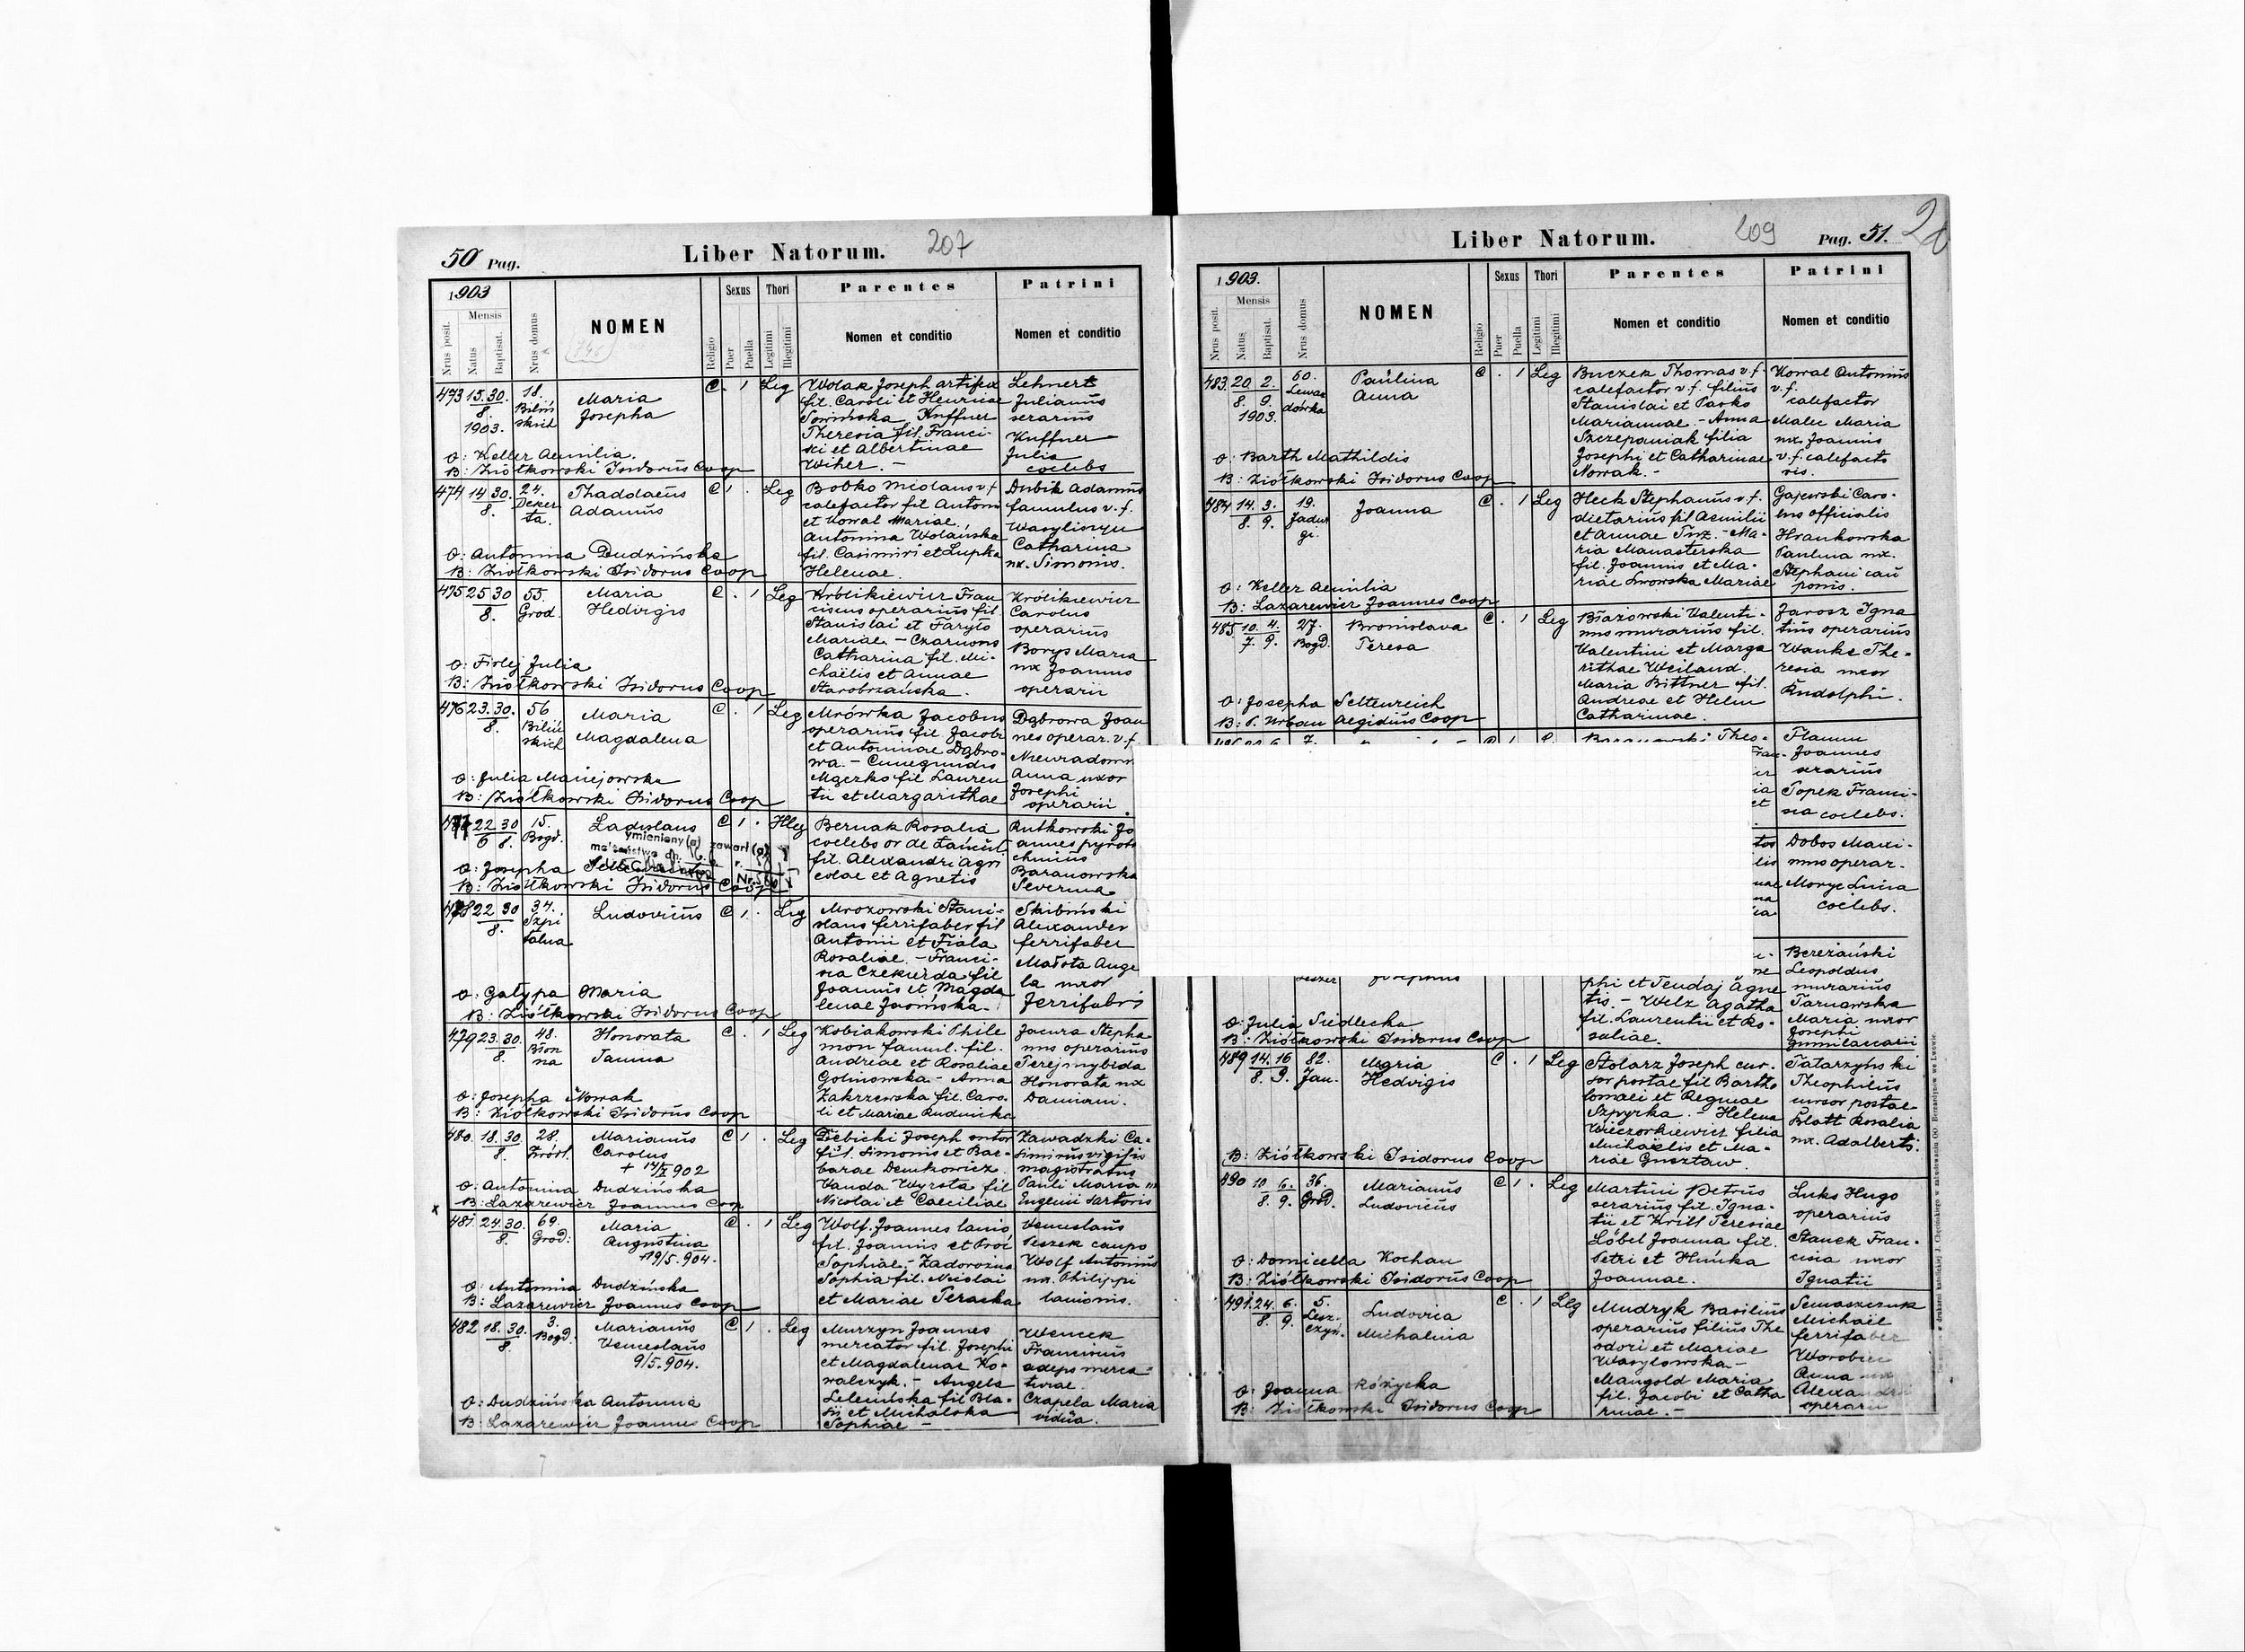 50 Pag.
Liber Natorum.
207
1903
Nrus posit.
Mensis
Natus
Baptisat.
Nrus domus
NOMEN
Religio
Sexus
Puer
Puella
Thori
Legitimi
Illegitimi
Parentes
Nomen et conditio
Patrini
Nomen et conditio
473 15. 30. 18. Maria C . 1 Leg Wolak Joseph artifex Lehnert
8. fil. Caroli et Henricae Julianus
1903. Josepha Kuffner serarius
Theresia fil. Franci- Kuffner
O: Keller Aemilia. sci et Albertinae Julia
B: Ziółkowski Isidorus Coop Wiher. - coelebs
474 14. 30. 24. Thaddaeus C 1 . Leg Bobko Nicolaus v.f. Dubik Adamus
8. Adamus calefactor fil Antoni famulus v.f.
et Kowal Mariae.
Antonina Wolańska Catharina
O: Antonina Dudzińska fil. Casimiri et Lupka ux. Simonis.
B: Ziółkowski Isidorus Coop Helenae.
475 25 30 55. Maria C . 1 Leg Królikiewicz Fran Królikiewicz
8. Grod. Hedvigis ciscus operarius fil Carolus
Stanislai et operarius
Mariae. - Borys Maria
O: Firlej Julia Catharina fil. Mi- ux Joannis
B: Ziółkowski Isidorus Coop chaëlis et Annae operarii
476 23. 30. 56 Maria C . 1 Leg Mrówka Jacobus Dąbrowa Joan
8. Magdalena operarius fil Jacobi nes operar. v.f.
et Antoninae Dąbro-
wa. - Cunegundis Anna uxor
O: Julia Maciejowska Mączko fil Lauren Josephi
B: Ziółkowski Isidorus Coop tii et Margarithae operarii
477 22 30 15. Ladislaus C 1 . Illeg Bernak Rosalia Rutkowski Jo
6 8. Bogd. coelebs annes
fil. Alexandri agri Baranowska
O: Josepha colae et Agnetis Severina
B: Ziółkowski Isidorus Coop
478 22 30 34. Ludovicus C 1 . Leg Mrozowski Stani- Skibiński
8. Szpi slaus ferrifaber fil Alexander
talna Antonii et Fiala ferrifaber
Rosaliae. - Franci- Małota Ange
sca Czekierda fil la uxor
O: Gałypa Maria Joannis et Magda ferrifabri
B: Ziółkowski Isidorus Coop lenae
479 23. 30. 48. Honorata C . 1 Leg Kobiakowski Phile Jacura Stepha
8. Błon Janina mon famul. fil. nus operarius
na Andreae et Rosaliae
Golinowska - Anna Honorata ux
O: Josepha Nowak Zakrzewska fil. Caro- Damiani.
B: Ziółkowski Isidorus Coop li et Mariae Rudnicka
480. 18. 30 28. Marianus C 1 . Leg Dębicki Joseph sutor Zawadzki Ca-
8. Carolus fil. Simonis et Bar- simirus vigilis
barae Demkowicz magistratus
O: Antonina Dudzińska Vanda Wyrsta fil Pauli Maria
B: Lazarewicz Joannes Coop Nicolai et Caeciliae Eugenii sartoris
481. 24. 30. 69. Maria C . 1 Leg Wolf Joannes lanio Venceslaus
8. Grod: Augustina fil. Joannis et Peszek caupo
+19/5.904. Sophiae. - Wolf Antonius
O: Antonina Dudzińska Sophia fil. Nicolai ux. Philippi
B: Lazarewicz Joannes Coop et Mariae lanionis.
482 18. 30. 3. Marianus C 1 . Leg Murzyn Joannes Wencek
8. Bogd. Venceslaus mercator fil. Josephi Franciscus
9/5.904. et Magdalenae Ko-
walczyk. - Angela
O: Dudzińska Antonina fil Bla- Czapela Maria
B: Lazarewicz Joannes Coop sii et Michalska vidua.
Sophiae -
Liber Natorum.
209
Pag. 51.
1903.
Nrus posit.
Mensis
Natus
Baptisat.
Nrus domus
NOMEN
Religio
Sexus
Puer
Puella
Thori
Legitimi
Illegitimi
Parentes
Nomen et conditio
Patrini
Nomen et conditio
483. 20. 2. 60. Paulina C . 1 Leg Buczek Thomas v.f. Kowal Antonius
8. 9. Lewan Anna calefactor v.f. filius v.f.
1903. dówka Stanislai et Pasko calefactor
Mariannae. - Anna Malec Maria
Szczepaniak filia ux. Joannis
O: Barth Mathildis Josephi et Catharinae v.f. calefacto
B: Ziółkowski Isidorus Coop Nowak. - ris.
484 14. 3. 19. Joanna C . 1 Leg Heck Stephanus v.f. Gajewski Caro-
8. 9. dietarius fil Aemilii lus officialis
et Annae - Ma- Hrankowska
ria Manasterska Paulina ux.
O: Keller Aemilia fil. Joannis et Ma- Stephani cau
B: Lazarewicz Joannes Coop riae Lwowska Mariae ponis.
485. 10. 4. 27. Bronislava C . 1 Leg Błażowski Valenti- Jarosz Igna
7. 9. Bogd. Teresa nus murarius fil. tius operarius
Valentini et Marga Wanke The-
rithae Weiland. resia uxor
O: Josepha Seltenreich Maria Bittner fil. Rudolphi.
B: P. Urban Aegidius Coop Andreae et Helm
Catharinae.
Flamm
Joannes
serarius
Topek Franci-
sca coelebs.
Dobos Maxi-
mus operar.
Moryc Luisa
coelebs.
Bereżański
phi et Agne Leopoldus
tis. - Welz Agatha murarius
O: Julia Siedlecka fil. Laurentii et Ro- Tarnawska
B: Ziółkowski Isidorus Coop saliae. Maria uxor
Josephi
489 14. 16 82. Maria C . 1 Leg Stolarz Joseph cur- Tatarzyński
8. 9. Jan. Hedvigis sor postae fil Bartho Theophilus
lomaei et Reginae cursor postae
Szpyrka. - Helena Blatt Rosalia
Wieczorkiewicz filia ux. Adalberti.
B: Ziółkowski Isidorus Coop Michaëlis et Ma-
riae Gusztaw.
490 10 6. 36. Marianus C 1 . Leg Martini Petrus Luks Hugo
8. 9. Grod. Ludovicus serarius fil. Igna- operarius
tii et Kritl Teresiae Stanek Fran-
O: Domicella Kochan Löbel Joanna fil. cisca uxor
B: Ziółkowski Isidorus Coop Petri et Joannae. Ignatii
491. 24. 6. 5. Ludovica C . 1 Leg Mudryk Basilius Semaszczuk
8. 9. Michalina operarius filius The Michaël
odori et Mariae ferrifaber
Wasylowska -
O: Joanna Różycka Mangold Maria Anna
B: Ziółkowski Isidorus Coop fil. Jacobi et Catha operarii
rinae. -